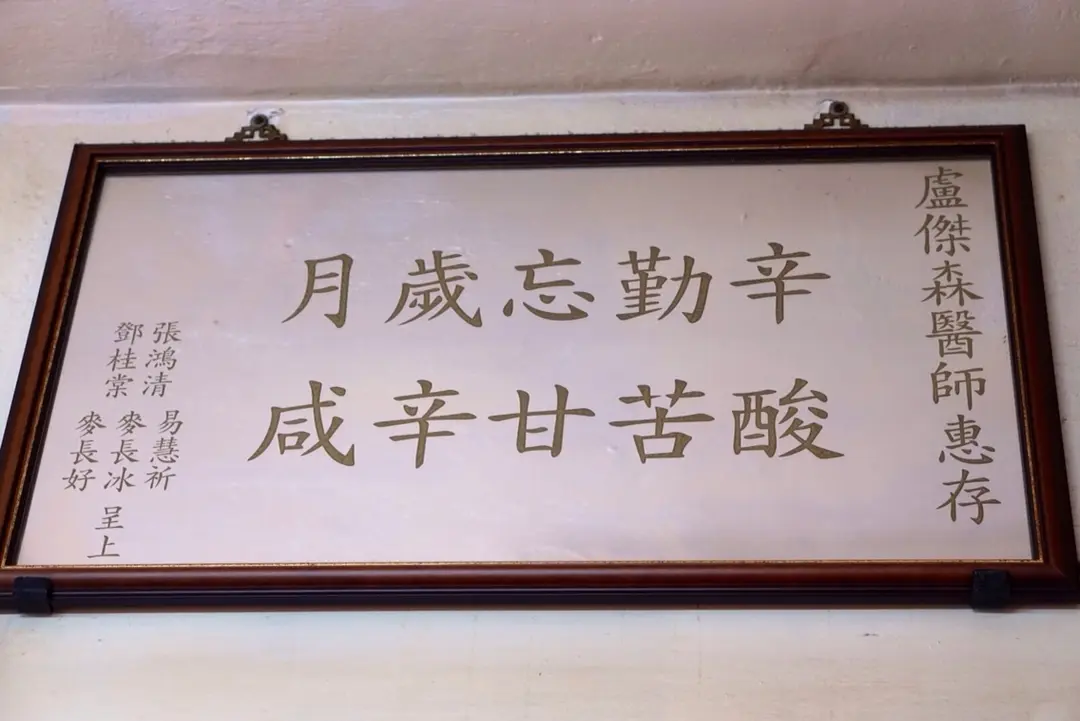 盧傑森醫師惠存
辛勤忘歲月
酸苦甘辛咸
張鴻清 易慧祈
鄧桂棠 麥長冰
麥長好
呈上